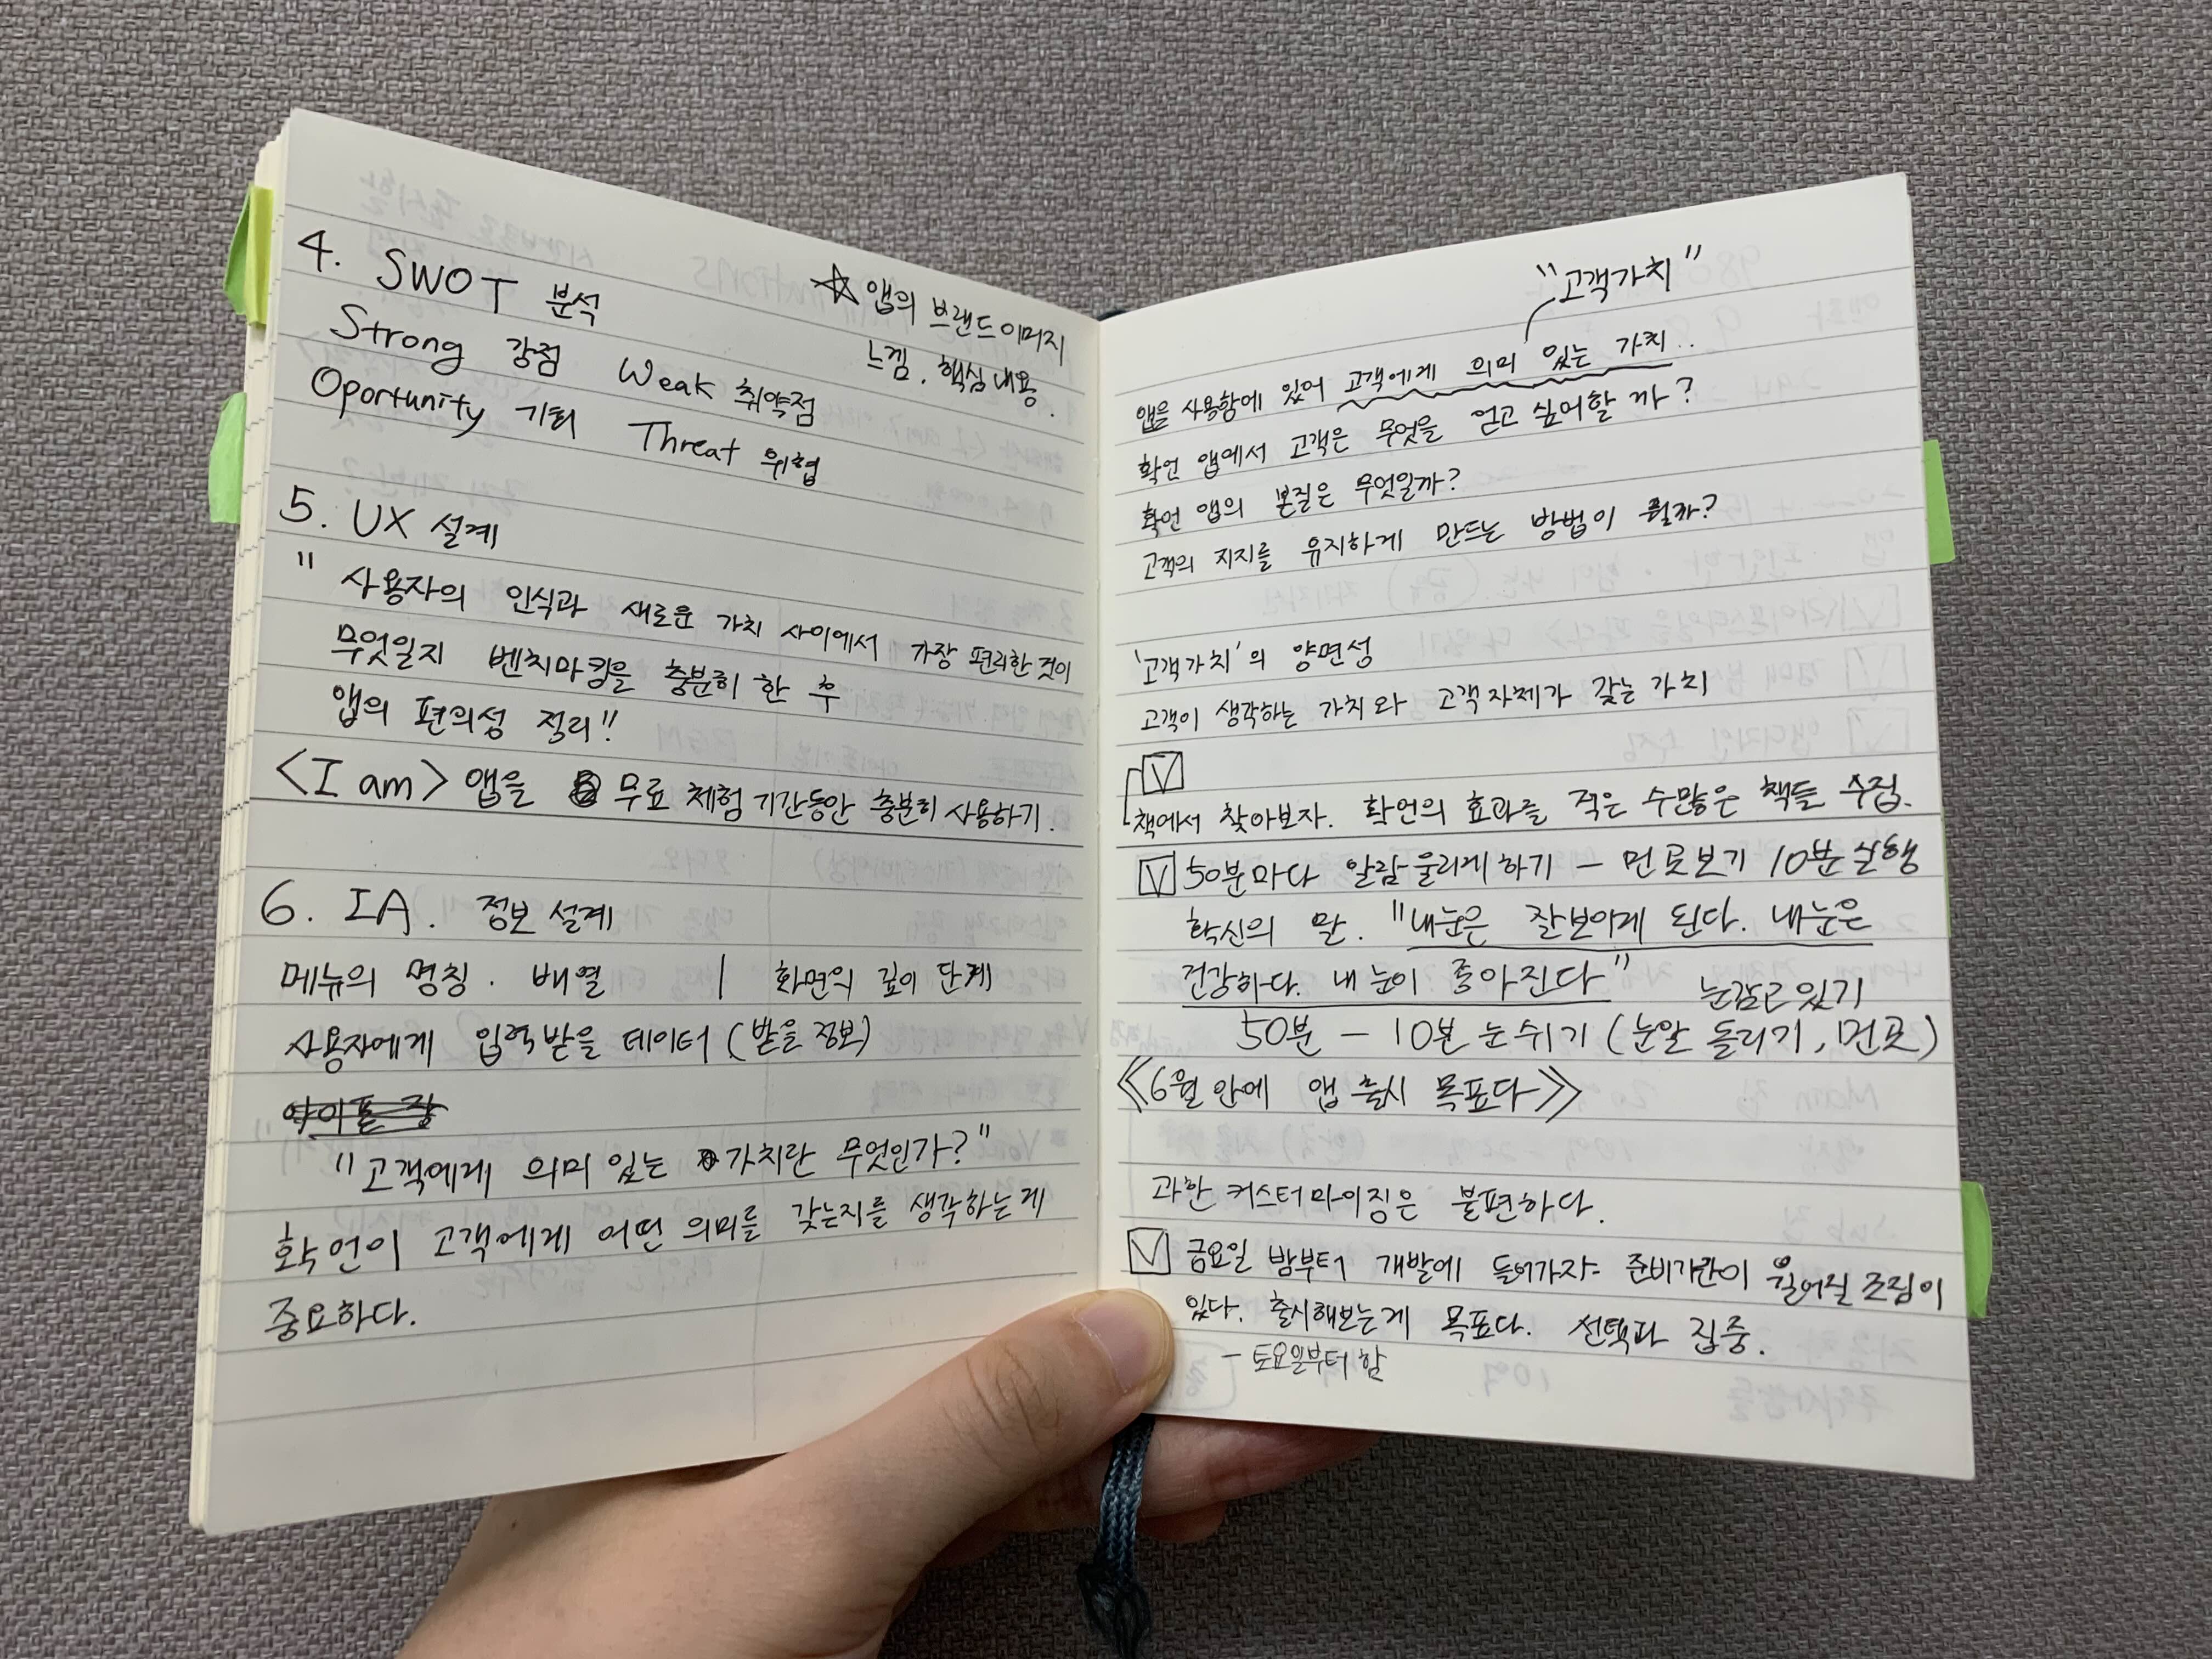 4. SWOT 분석
☆ 앱의 브랜드 이미지
느낌. 핵심 내용.
Strong 강점 Weak 취약점
Oportunity 기회 Threat 위협
5. UX 설계
" 사용자의 인식과 새로운 가치 사이에서 가장 편리한 것이
무엇일지 벤치마킹을 충분히 한 후
앱의 편의성 정리!!
<I am> 앱을 무료 체험 기간동안 충분히 사용하기.
6. IA. 정보 설계
메뉴의 명칭. 배열 | 화면의 깊이 단계
사용자에게 입력받을 데이터 (받을 정보)
"고객에게 의미 있는 가치란 무엇인가?"
확언이 고객에게 어떤 의미를 갖는지를 생각하는게
중요하다.
"고객가치"
앱을 사용함에 있어 고객에게 의미 있는 가치..
확언 앱에서 고객은 무엇을 얻고 싶어할까?
확언 앱의 본질은 무엇일까?
고객의 지지를 유지하게 만드는 방법이 뭘까?
'고객가치'의 양면성
고객이 생각하는 가치와 고객 자체가 갖는 가치
☑
책에서 찾아보자. 확언의 효과를 적은 수많은 책들 수집.
☑ 50분마다 알람 울리게 하기 – 먼곳보기 10분 실행
확신의 말. "내눈은 잘보이게 된다. 내눈은
건강하다. 내 눈이 좋아진다" 눈감고 있기
50분 – 10분 눈 쉬기 (눈알 돌리기, 먼곳)
《6월 안에 앱 출시 목표다》
과한 커스터마이징은 불편하다.
☑ 금요일 밤부터 개발에 들어가자. 준비기간이 길어질 조짐이
있다. 출시해보는게 목표다. 선택과 집중.
– 토요일부터 함